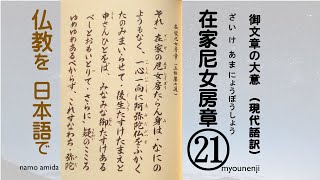 御文章の大意 (現代語訳)
ざい け あま にょうぼうしょう
在家尼女房章㉑
在家尼女房章(五帖第三通)
それ、在家の尼女房たらん身は、なにの
ようもなく、一心一向に阿弥陀仏をふかく
たのみまいらせて、後生たすけたまえと
申さんひとをば、みなみな御たすけある
べしとおもいとりて、さらに疑のこころ
ゆめゆめあるべからず。これすなわち弥陀
仏教を 日本語で
namo amida
myounenji